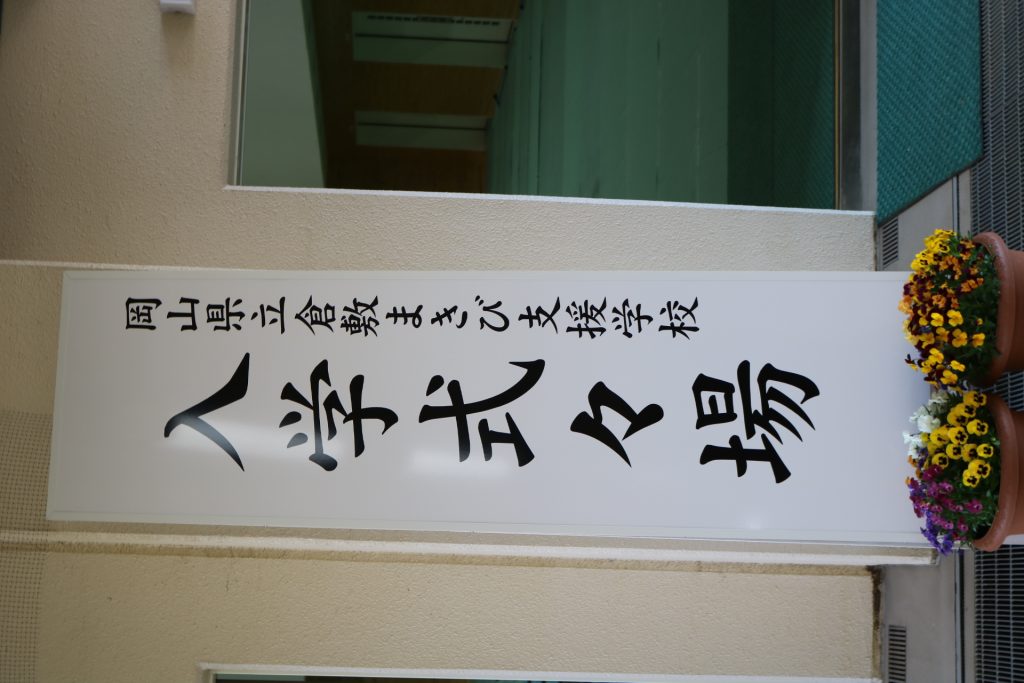 岡山県立倉敷まきび支援学校
入学式々場